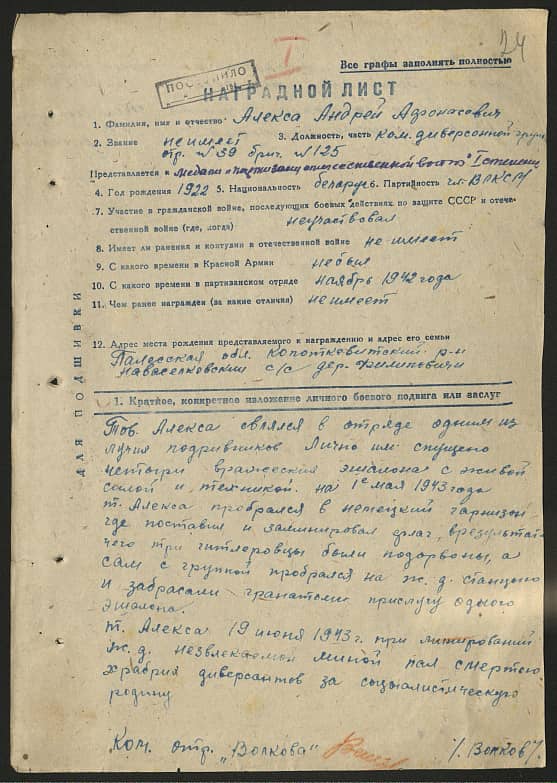 24
I
Все графы заполнять полностью
ПОСТУПИЛО
НАГРАДНОЙ ЛИСТ
1. Фамилия, имя и отчество Алекса Андрей Афонасович
2. Звание не имеет 3. Должность, часть ком. диверсонной групы
отр. №39 бриг. №125
Представляется к медали „партизану отечественной войны" I степени
4. Год рождения 1922 5. Национальность беларус 6. Партийность чл. ВЛКСМ
7. Участие в гражданской войне, последующих боевых действиях по защите СССР и отече-
ственной войне (где, когда) неучаствовал
8. Имеет ли ранения и контузии в отечественной войне не имеет
9. С какого времени в Красной Армии небыл
10. С какого времени в партизанском отряде ноябрь 1942 года
11. Чем ранее награжден (за какие отличия) неимеет
12. Адрес места рождения представляемого к награждению и адрес его семьи
Палесская обл. Копоткевитский р-н
Наваселковский с/с дер. Филиповичи
ДЛЯ ПОДШИВКИ
1. Краткое, конкретное изложение личного боевого подвига или заслуг
Тов. Алекса овлялся в отряде одним из
лучих подривников Лично им спущено
четыри вражеских эшалона с живой
силой и техникой. на 1е мая 1943 года
т. Алекса пробрался в немецкий гарнизон
где поставил и заминировал флаг, врезультате
чего три гитлеровцы были подорвоны, а
сам с групой пробрался на ж. д. станцыю
и забрасали гранатами прислугу одного
эшалона.
т. Алекса 19 июня 1943 г. при минировании
ж. д. незвлекаемой миной пал смертью
храбрих диверсантов за социалистическую
родину
Ком. отр. „Волкова" /. Волков/